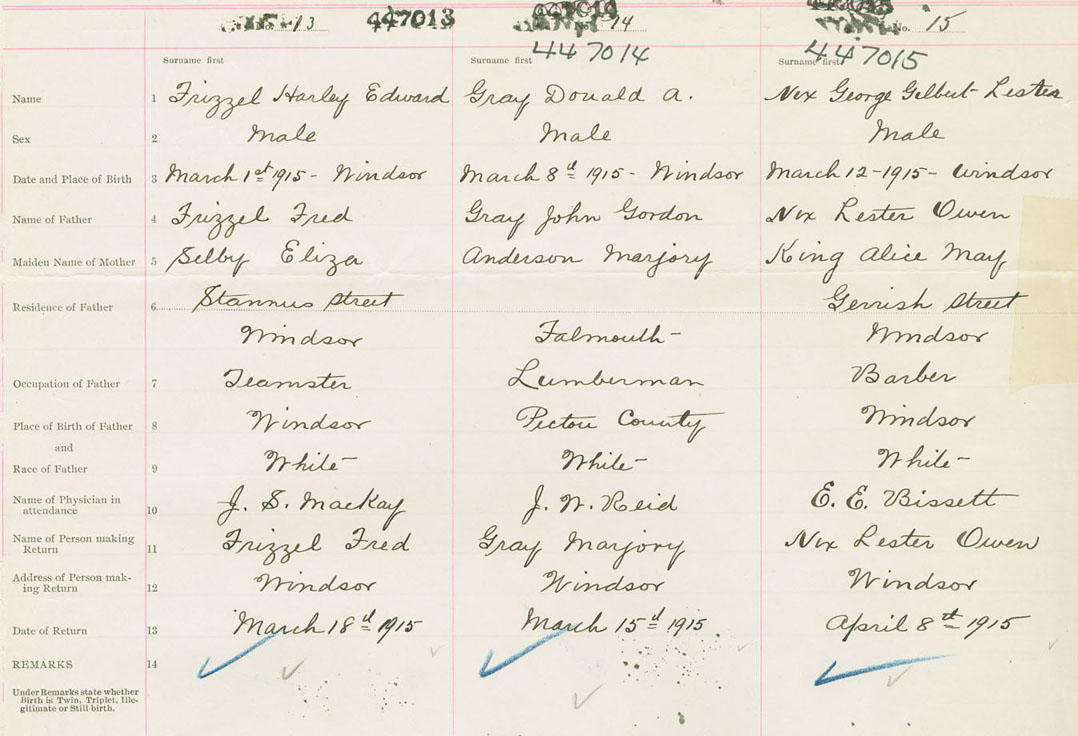 No. 13 447013 No. 14 No. 15
447014 447015
Surname first Surname first Surname first
Name 1 Frizzel Harley Edward Gray Donald A. Nix George Gilbert Lester
Sex 2 Male Male Male
Date and Place of Birth 3 March 1st 1915 - Windsor March 8th 1915 - Windsor March 12 - 1915 - Windsor
Name of Father 4 Frizzel Fred Gray John Gordon Nix Lester Owen
Maiden Name of Mother 5 Selby Eliza Anderson Marjory King Alice May
Residence of Father 6 Stannus Street Gerrish Street
Windsor Falmouth Windsor
Occupation of Father 7 Teamster Lumberman Barber
Place of Birth of Father 8 Windsor Pictou County Windsor
and
Race of Father 9 White White White
Name of Physician in
attendance 10 J. S. MacKay J. W. Reid E. E. Bissett
Name of Person making
Return 11 Frizzel Fred Gray Marjory Nix Lester Owen
Address of Person mak-
ing Return 12 Windsor Windsor Windsor
Date of Return 13 March 18th 1915 March 15th 1915 April 8th 1915
REMARKS 14
Under Remarks state whether
Birth is Twin, Triplet, Ille-
gitimate or Still-birth.